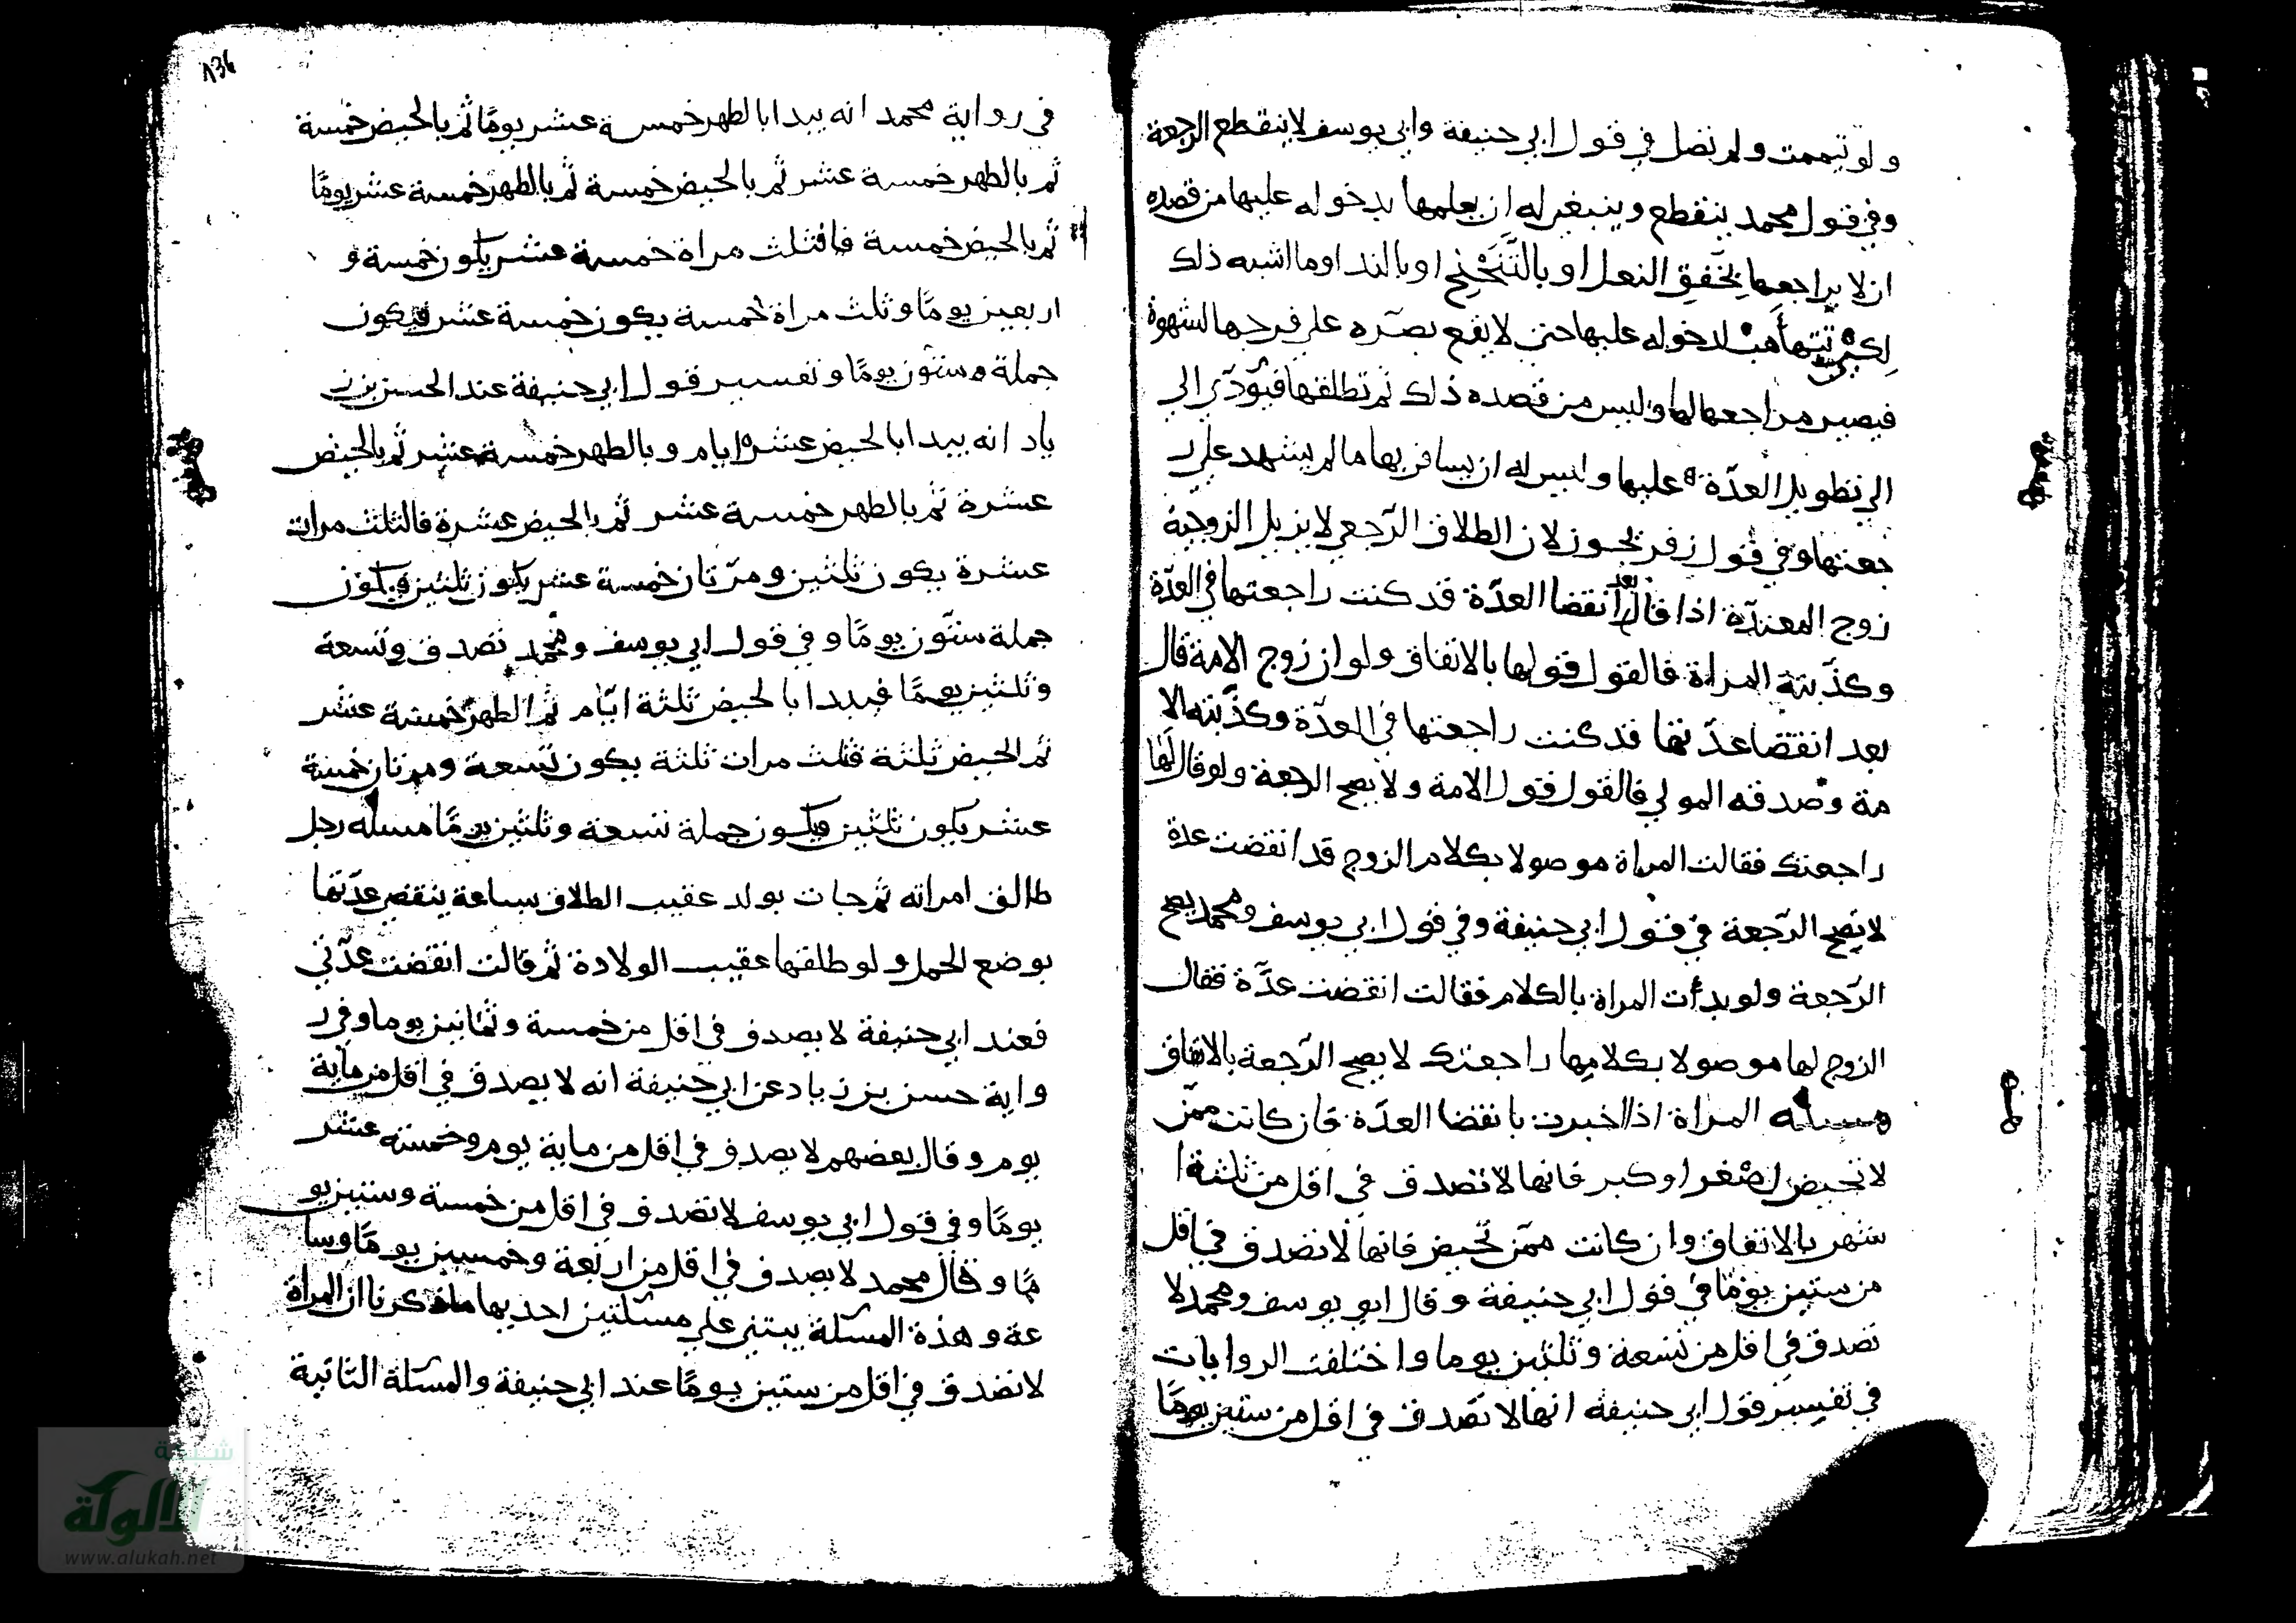 ولو تيممت ولم تصل في قول ابي حنيفة وابي يوسف لا ينقطع الرجعة
وفي قول محمد ينقطع وينبغي له ان يعلمها بدخوله عليها من قصده
ان لا يراجعها بخفق النعل او بالتنحنح او بالندا وما اشبه ذلك
لكي تتهاهب لدخوله عليها حتى لا يقع بصره على فرجها لشهوة
فيصير مراجعها لها وليس من قصده ذلك ثم تطلقها فيؤدي الي
الي تطويل العدّة عليها وليس له ان يسافر بها ما لم يشهد على ر
جعتها وفي قول زفر يجوز لان الطلاق الرّجعي لا يزيل الزوجيّة
زوج المعتدّة اذا قال بعد انقضا العدّة قد كنت راجعتها في العدّة
وكذّبته المراة فالقول قولها بالاتفاق ولو ان زوج الامة قال
بعد انقضا عدّتها قد كنت راجعتها في العدّة وكذّبته الا
مة وصدقه المولي فالقول قول الامة ولا يصح الرجعة ولو قال لها
راجعتك فقالت المراة موصولا بكلام الزوج قد انقضت عدة
لا يصح الرّجعة في قول ابي حنيفة وفي قول ابي يوسف ومحمد يصح
الرّجعة ولو بدأت المراة بالكلام فقالت انقضت عدّة فقال
الزوج لها موصولا بكلامها راجعتك لا يصح الرّجعة بالاتفاق
مسئله المراة اذا اخبرت بانقضا العدّة فان كانت ممّن
لا تحيض لصغر او كبر فانها لا تصدق في اقل من ثلثة ا
شهر بالاتفاق وان كانت ممّن تحيض فانها لا تصدق في اقل
من ستين يومًا في قول ابي حنيفة وقال ابو يوسف ومحمد لا
تصدق في اقل من تسعة وثلثين يوما واختلفت الروايات
في تفسير قول ابي حنيفة انها لا تصدق في اقل من ستين يومًا
136
في رواية محمد انه يبدا بالطهر خمسة عشر يومًا ثم بالحيض خمسة
ثم بالطهر خمسة عشر ثم بالحيض خمسة ثم بالطهر خمسة عشر يومًا
ثم بالحيض خمسة فافثلث مراة خمسة عشر يكون خمسة و
اربعين يومًا وثلث مراة خمسة يكون خمسة عشر فيكون
جملة ستون يومًا وتفسير قول ابي حنيفة عند الحسن بن ز
ياد انه يبدا بالحيض عشرة ايام وبالطهر خمسة عشر ثم بالحيض
عشرة ثم بالطهر خمسة عشر ثم بالحيض عشرة فالثلث مرات
عشرة يكون ثلثين ومرّتان خمسة عشر يكون ثلثين فيكون
جملة ستّون يومًا وفي قول ابي يوسف ومحمد تصدق وتسعة
وثلثين يومًا فيبدا بالحيض ثلثة ايّام ثم الطهر خمسة عشر
ثم الحيض ثلثة فثلث مرات ثلثة يكون تسعة ومرتان خمسة
عشر يكون ثلثين فيكون جملة تسعة وثلثين يومًا مسئله رجل
طالق امراته ثم جات بولد عقيب الطلاق بساعة ينقض عدّتها
بوضع الحمل ولو طلقها عقيب الولادة ثم قالت انقضت عدّتي
فعند ابي حنيفة لا يصدق في اقل من خمسة وثمانين يوما وفي ر
واية حسن بن زياد عن ابي حنيفة انه لا يصدق في اقل من ماية
يوم وقال بعضهم لا يصدق في اقل من ماية يوم وخمسة عشر
يومًا وفي قول ابي يوسف لا تصدق في اقل من خمسة وستين يو
مًا وقال محمد لا يصدق في اقل من اربعة وخمسين يومًا وسا
عة وهذة المسئلة يبتني علي مسئلتين احديها ما ذكرنا ان المراة
لا تصدق في اقل من ستين يومًا عند ابي حنيفة والمسئلة الثانية
شبكة
الألوكة
www.alukah.net